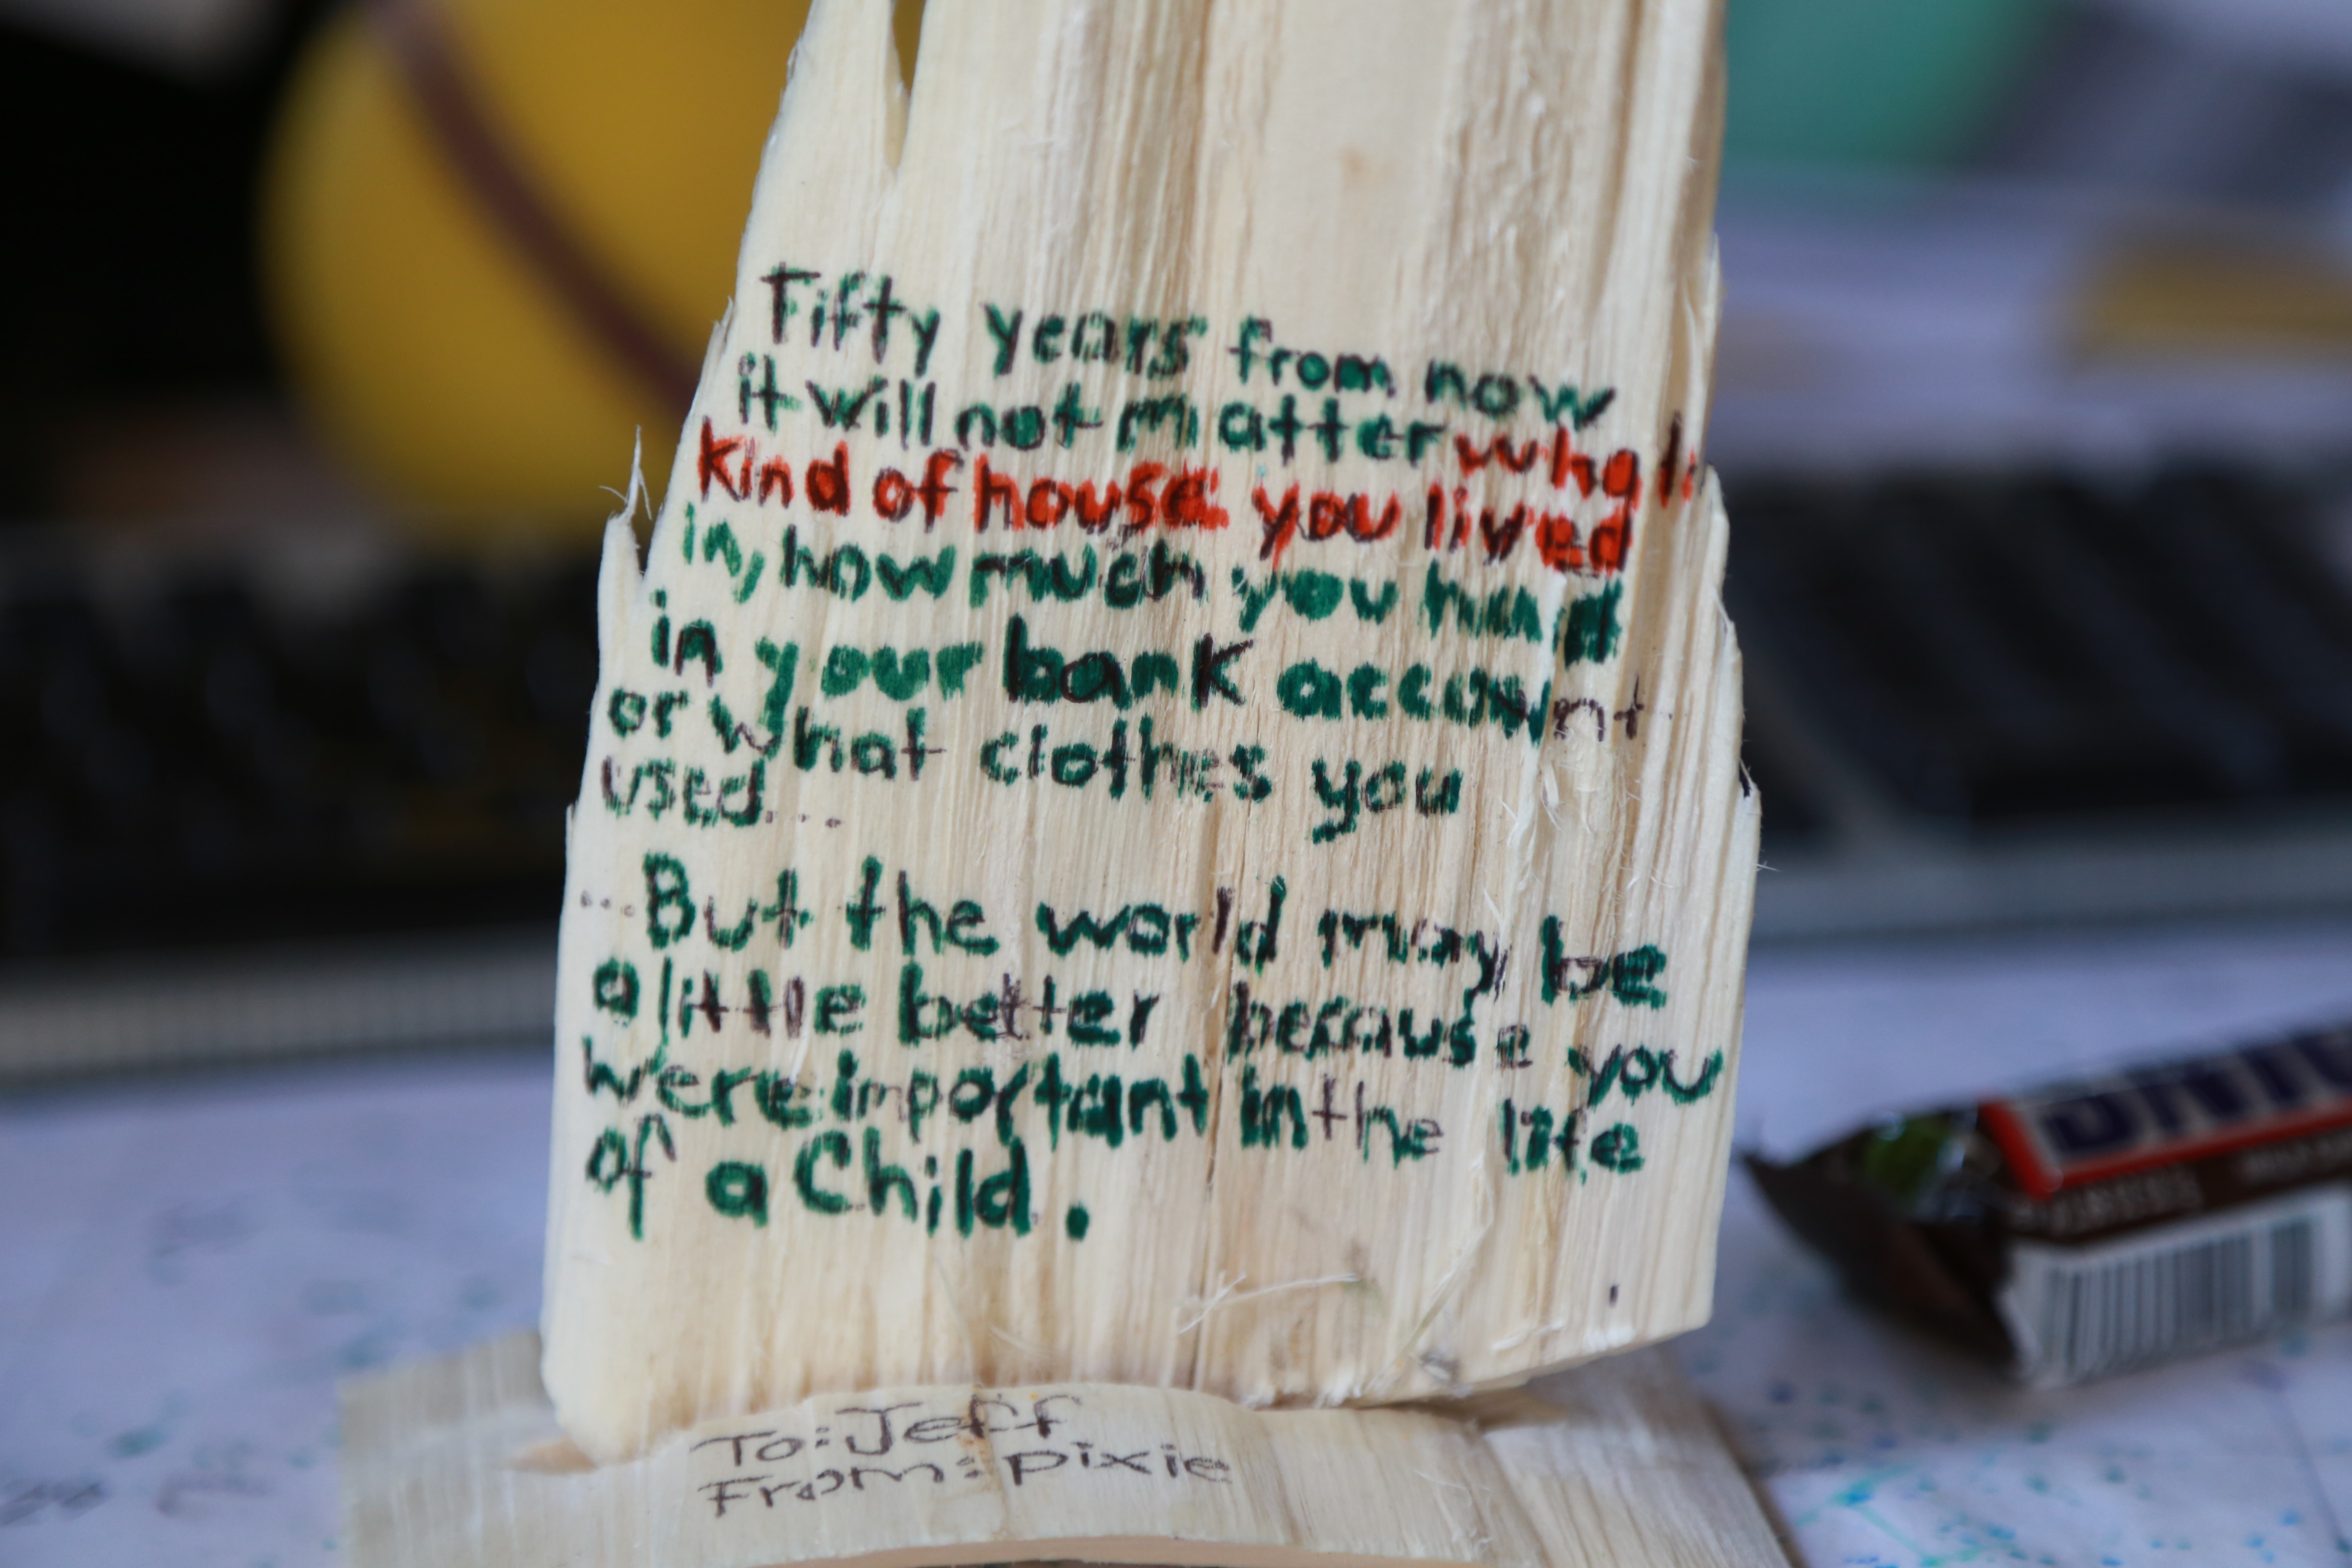 Fifty years from now
it will not matter what
kind of house you lived
in, how much you had
in your bank account
or what clothes you
used....
...But the world may be
a little better because you
were important in the life
of a Child.
To: Jeff
From: pixie